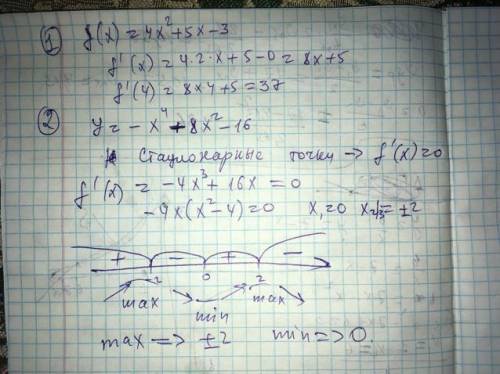 ① f(x) = 4x² + 5x - 3
f'(x) = 4·2·x + 5 - 0 = 8x + 5
f'(4) = 8×4 + 5 = 37
② y = - x⁴ + 8x² - 16
Стационарные точки → f'(x) = 0
f'(x) = -4x³ + 16x = 0
-4x(x² - 4) = 0 x₁ = 0 x₂/₃ = ±2
+ - + -
-2 0 2
max min max
max => ±2 min => 0